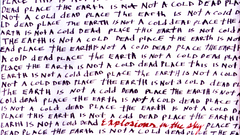 PLACE THE EARTH IS NOT A COLD DEAD
DEAD PLACE THE EARTH IS NOT A COLD DEAD PLACE
NOT A COLD DEAD PLACE THE EARTH IS NOT A COLD
DEAD PLACE THE EARTH IS NOT A COLD DEAD PLACE THE
EARTH IS NOT A COLD DEAD PLACE THE EARTH IS NOT
THE EARTH IS NOT A COLD DEAD PLACE THE EARTH IS
DEAD PLACE THE EARTH NOT A COLD DEAD PLACE THE EARTH
A COLD DEAD PLACE THE EARTH IS NOT A COLD DEAD PLACE
IS NOT A COLD DEAD PLACE THE EARTH IS NOT A COLD
THE EARTH IS NOT A COLD DEAD PLACE THE EARTH IS
NOT A COLD DEAD PLACE THE EARTH IS NOT A COLD DEAD
THE EARTH IS NOT A COLD DEAD PLACE THE EARTH IS
COLD DEAD PLACE THE EARTH IS NOT A COLD DEAD PLACE
IS NOT A COLD DEAD PLACE THE EARTH IS NOT A COLD
PLACE THE EARTH IS NOT A COLD DEAD PLACE THE EARTH
EARTH IS NOT A COLD DEAD Explosions in the Sky PLACE